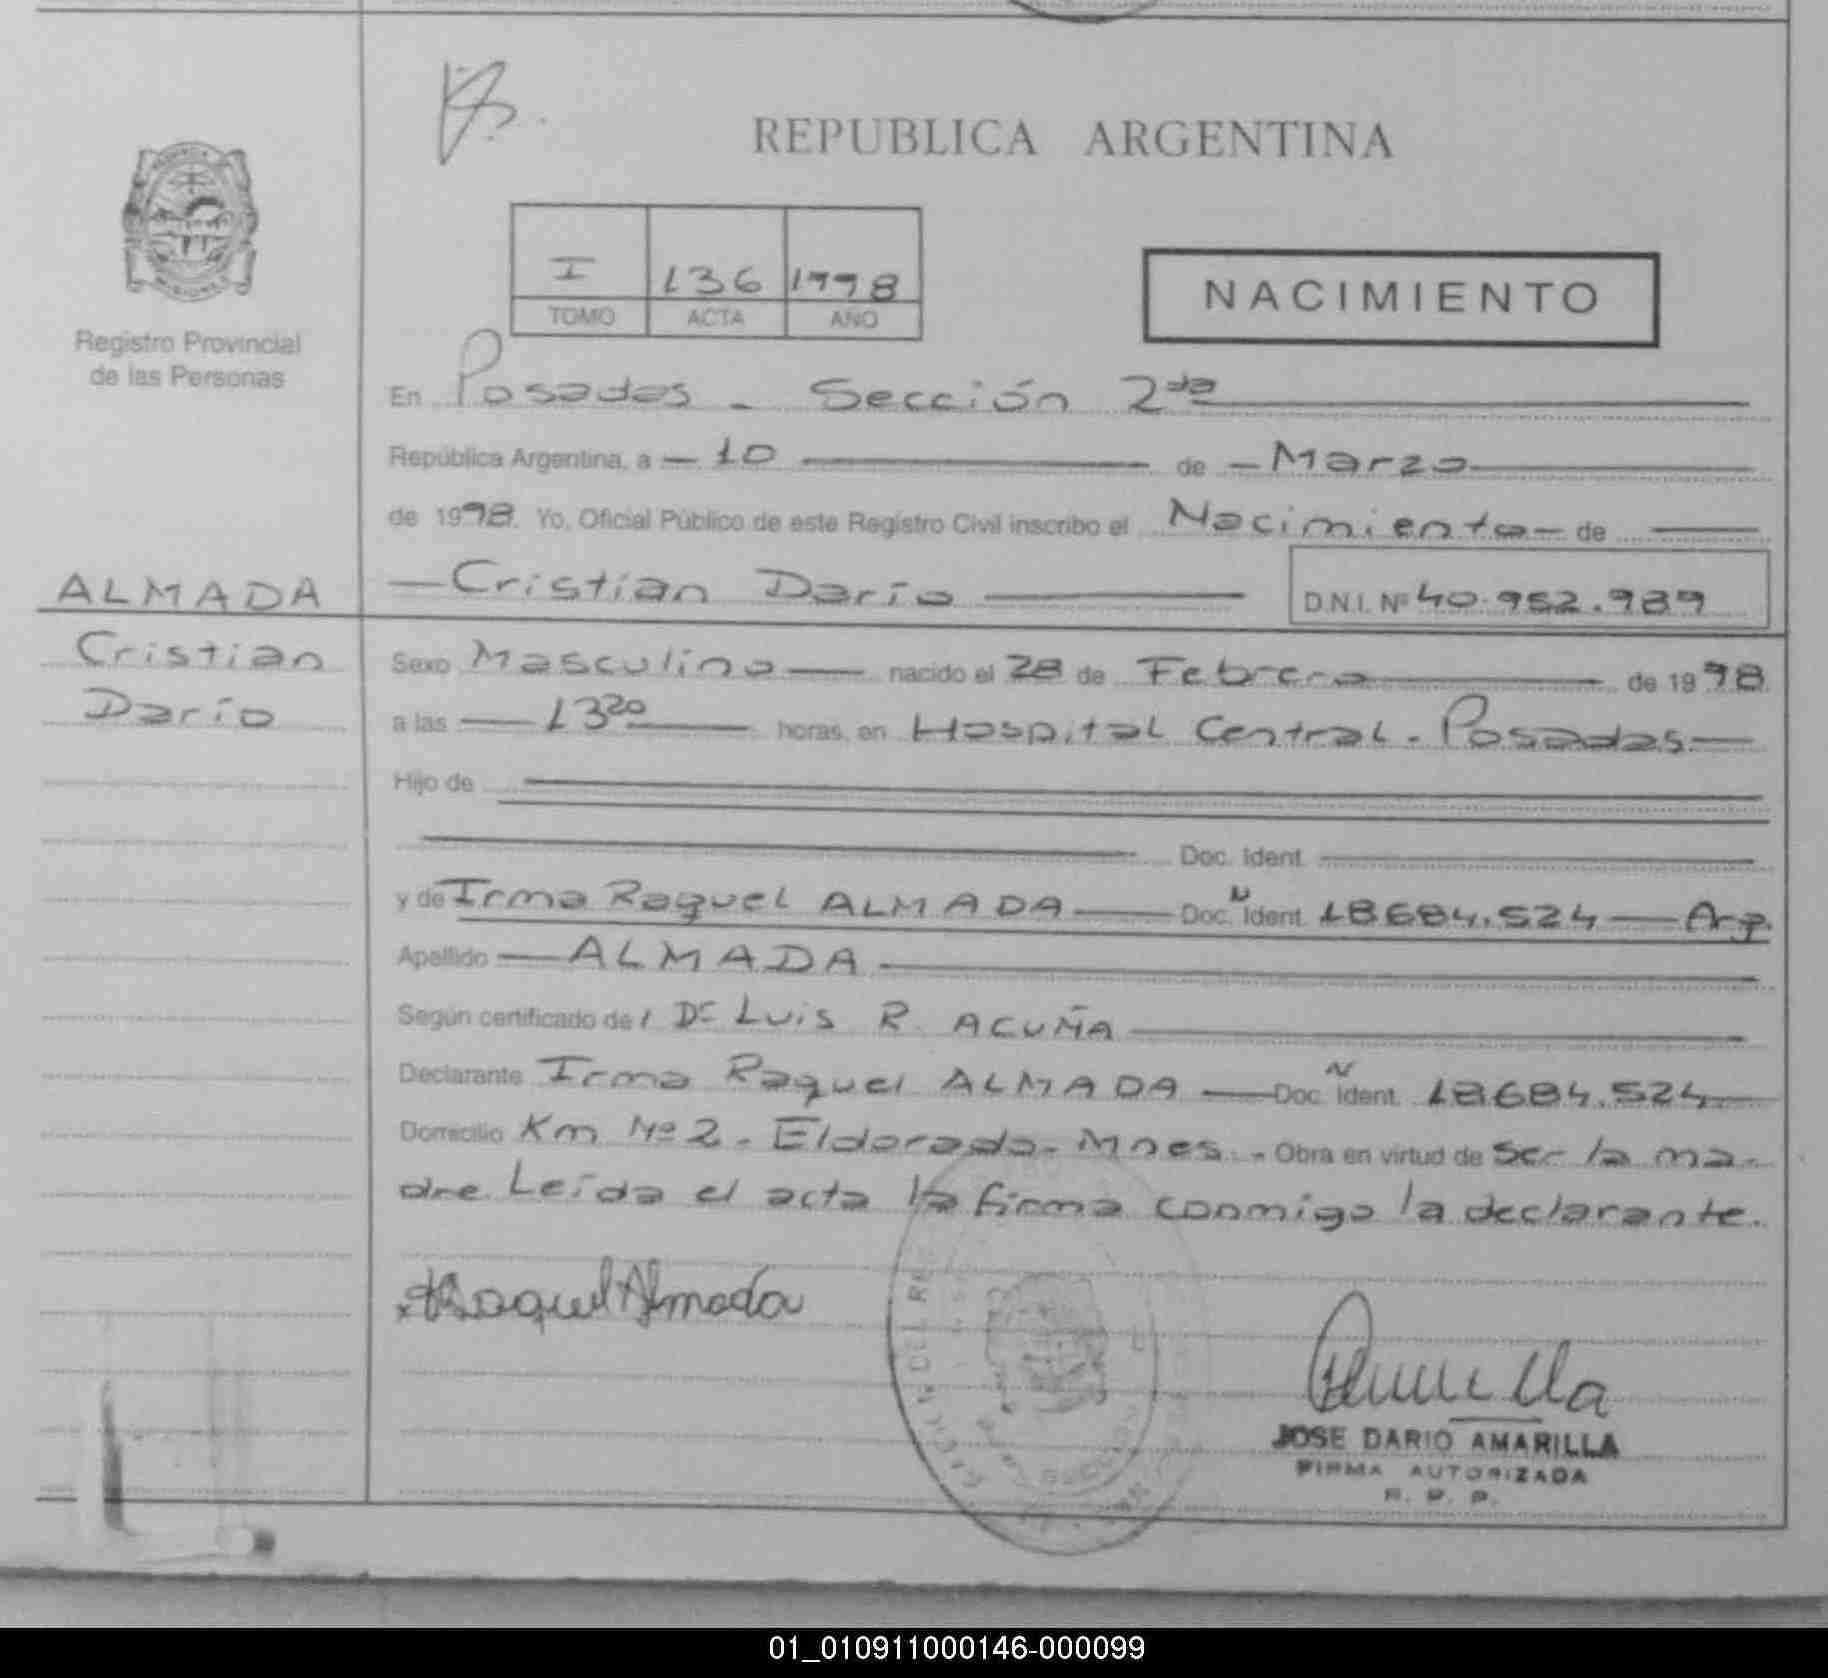 REPUBLICA ARGENTINA
I 136 1998
TOMO ACTA AÑO
NACIMIENTO
Registro Provincial
de las Personas
En Posadas - Sección 2da
República Argentina, a 10 de Marzo
de 1998. Yo, Oficial Público de este Registro Civil inscribo el Nacimiento de
ALMADA
Cristian
Darío
Cristian Darío D.N.I. Nº 40.952.989
Sexo Masculino nacido el 28 de Febrero de 1998
a las 13 20 horas, en Hospital Central - Posadas
Hijo de
Doc. Ident.
y de Irma Raquel ALMADA Doc. N Ident. 18684.524 Arg.
Apellido ALMADA
Según certificado de Dr Luis R. ACUÑA
Declarante Irma Raquel ALMADA Doc. N Ident. 18684.524
Domicilio Km Nº 2 - Eldorado - Mnes. - Obra en virtud de Ser la ma-
dre. Leída el acta la firma conmigo la declarante.
Raquel Almada
JOSE DARIO AMARILLA
FIRMA AUTORIZADA
R. P. P.
01_010911000146-000099